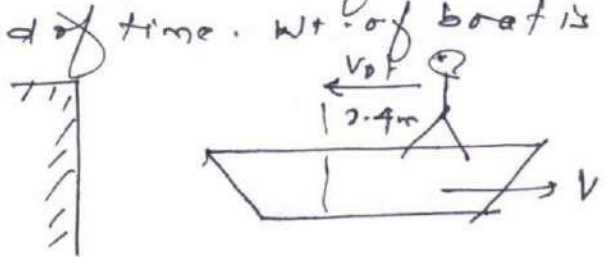 d of time. Wt. of boat is
2.4m
V